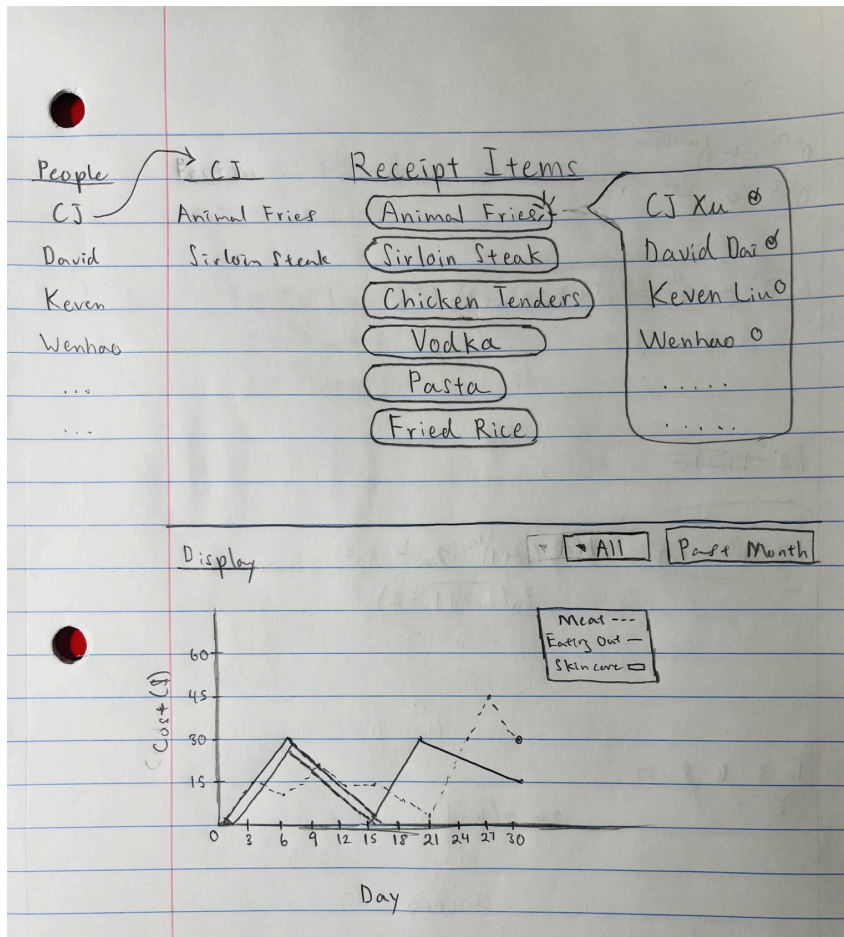 People
CJ
David
Keven
Wenhao
...
...
CJ
Animal Fries
Sirloin Steak
Receipt Items
Animal Fries
Sirloin Steak
Chicken Tenders
Vodka
Pasta
Fried Rice
CJ Xu
David Dai
Keven Liu
Wenhao
.....
.....
Display
All
Past Month
Meat ---
Eating Out —
Skincare
Cost ($)
60
45
30
15
0 3 6 9 12 15 18 21 24 27 30
Day